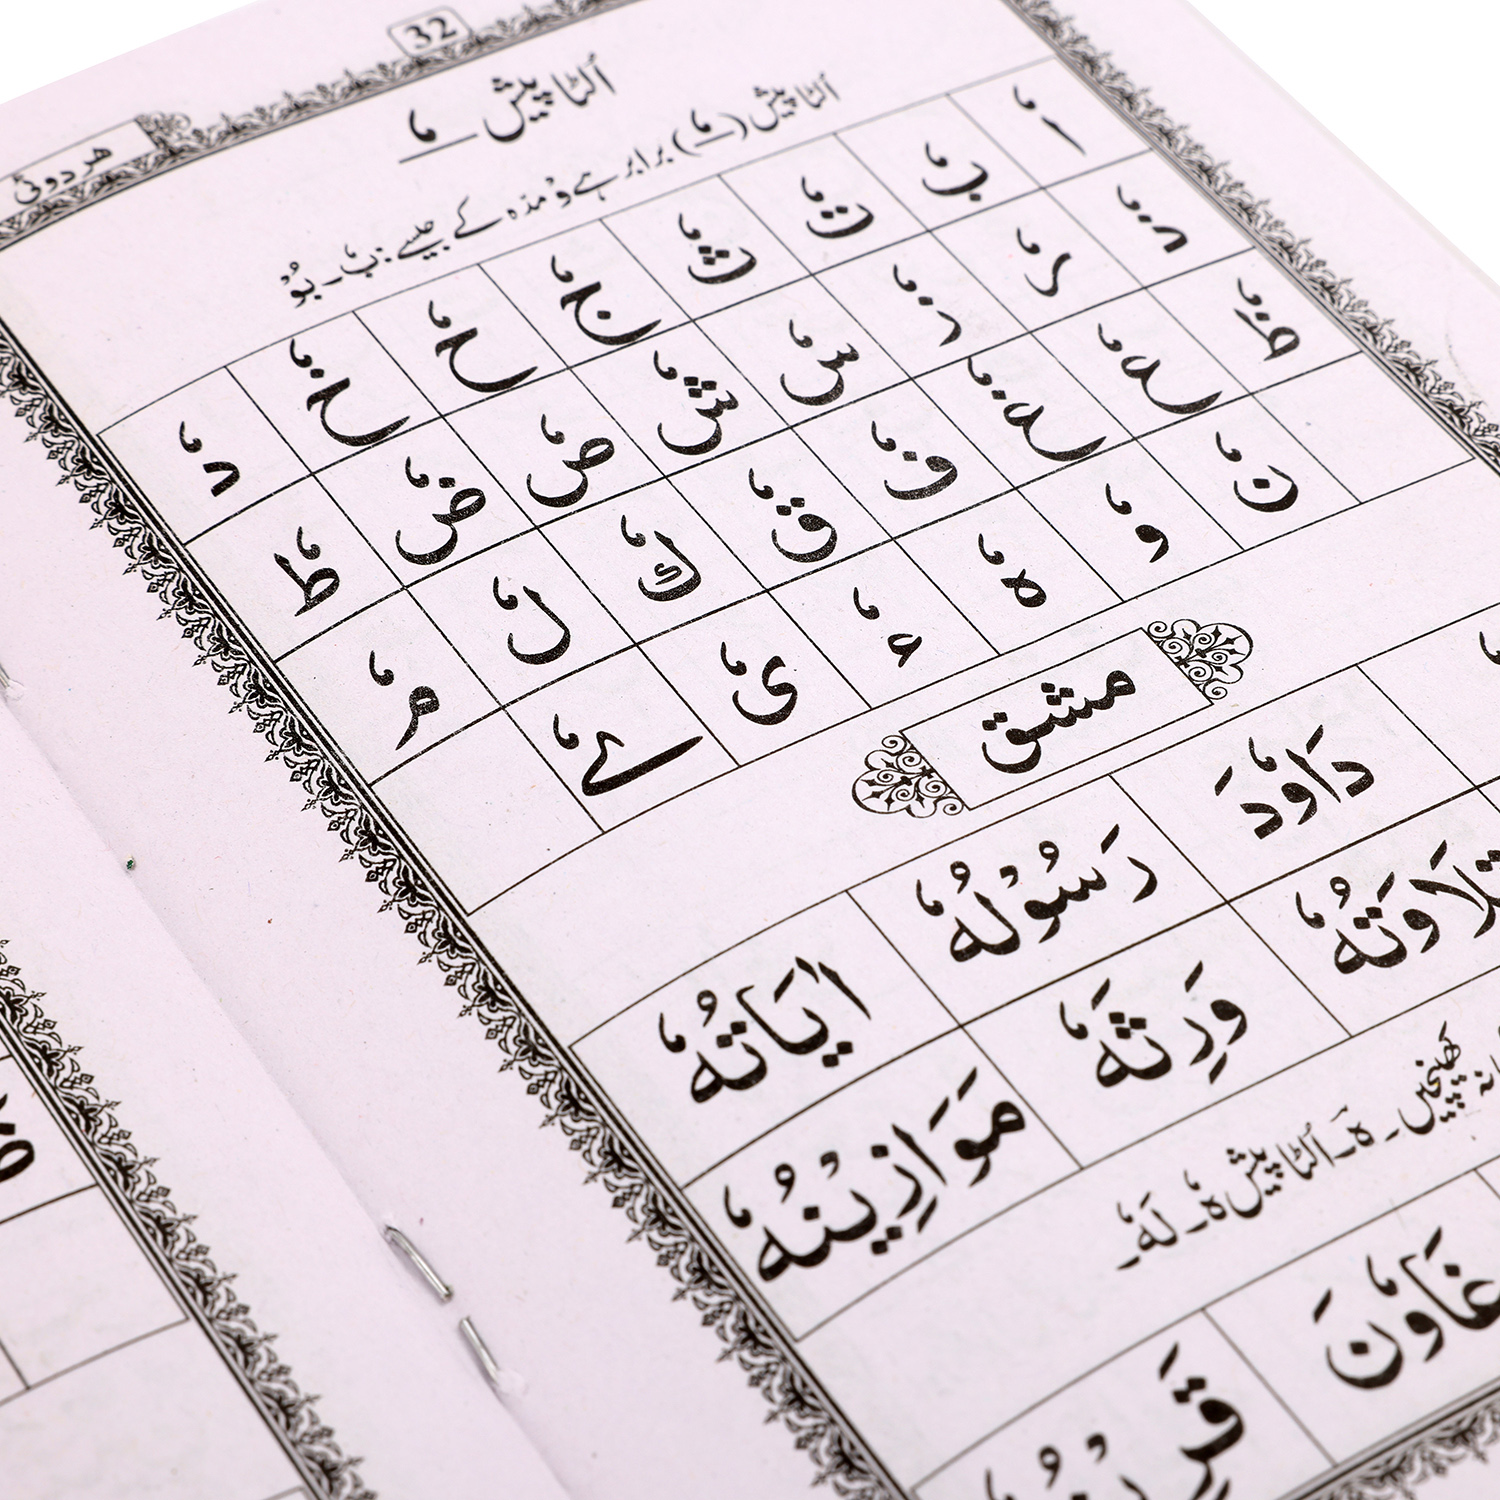 32
هر دوئی
اُلٹا پیش ـٗـ
اُلٹا پیش (ـٗـ) برابر ہے وْ مدّہ کے جیسے: بٗ۔ بُوْ
اٗ بٗ تٗ ثٗ جٗ حٗ خٗ دٗ
ذٗ رٗ زٗ سٗ شٗ صٗ ضٗ طٗ
ظٗ عٗ غٗ فٗ قٗ كٗ لٗ مٗ
نٗ وٗ هٗ ءٗ یٗ ےٗ
مشق
دَاوٗدَ رَسُوْلُهٗ اٰيَاتُهٗ
تِلَاوَتُهٗ وَرِثَهٗ مَوَازِيْنُهٗ
کھینچیں۔ هَ۔ اُلٹا پیش هٗ۔ لَهٗ۔
غَاوٗنَ